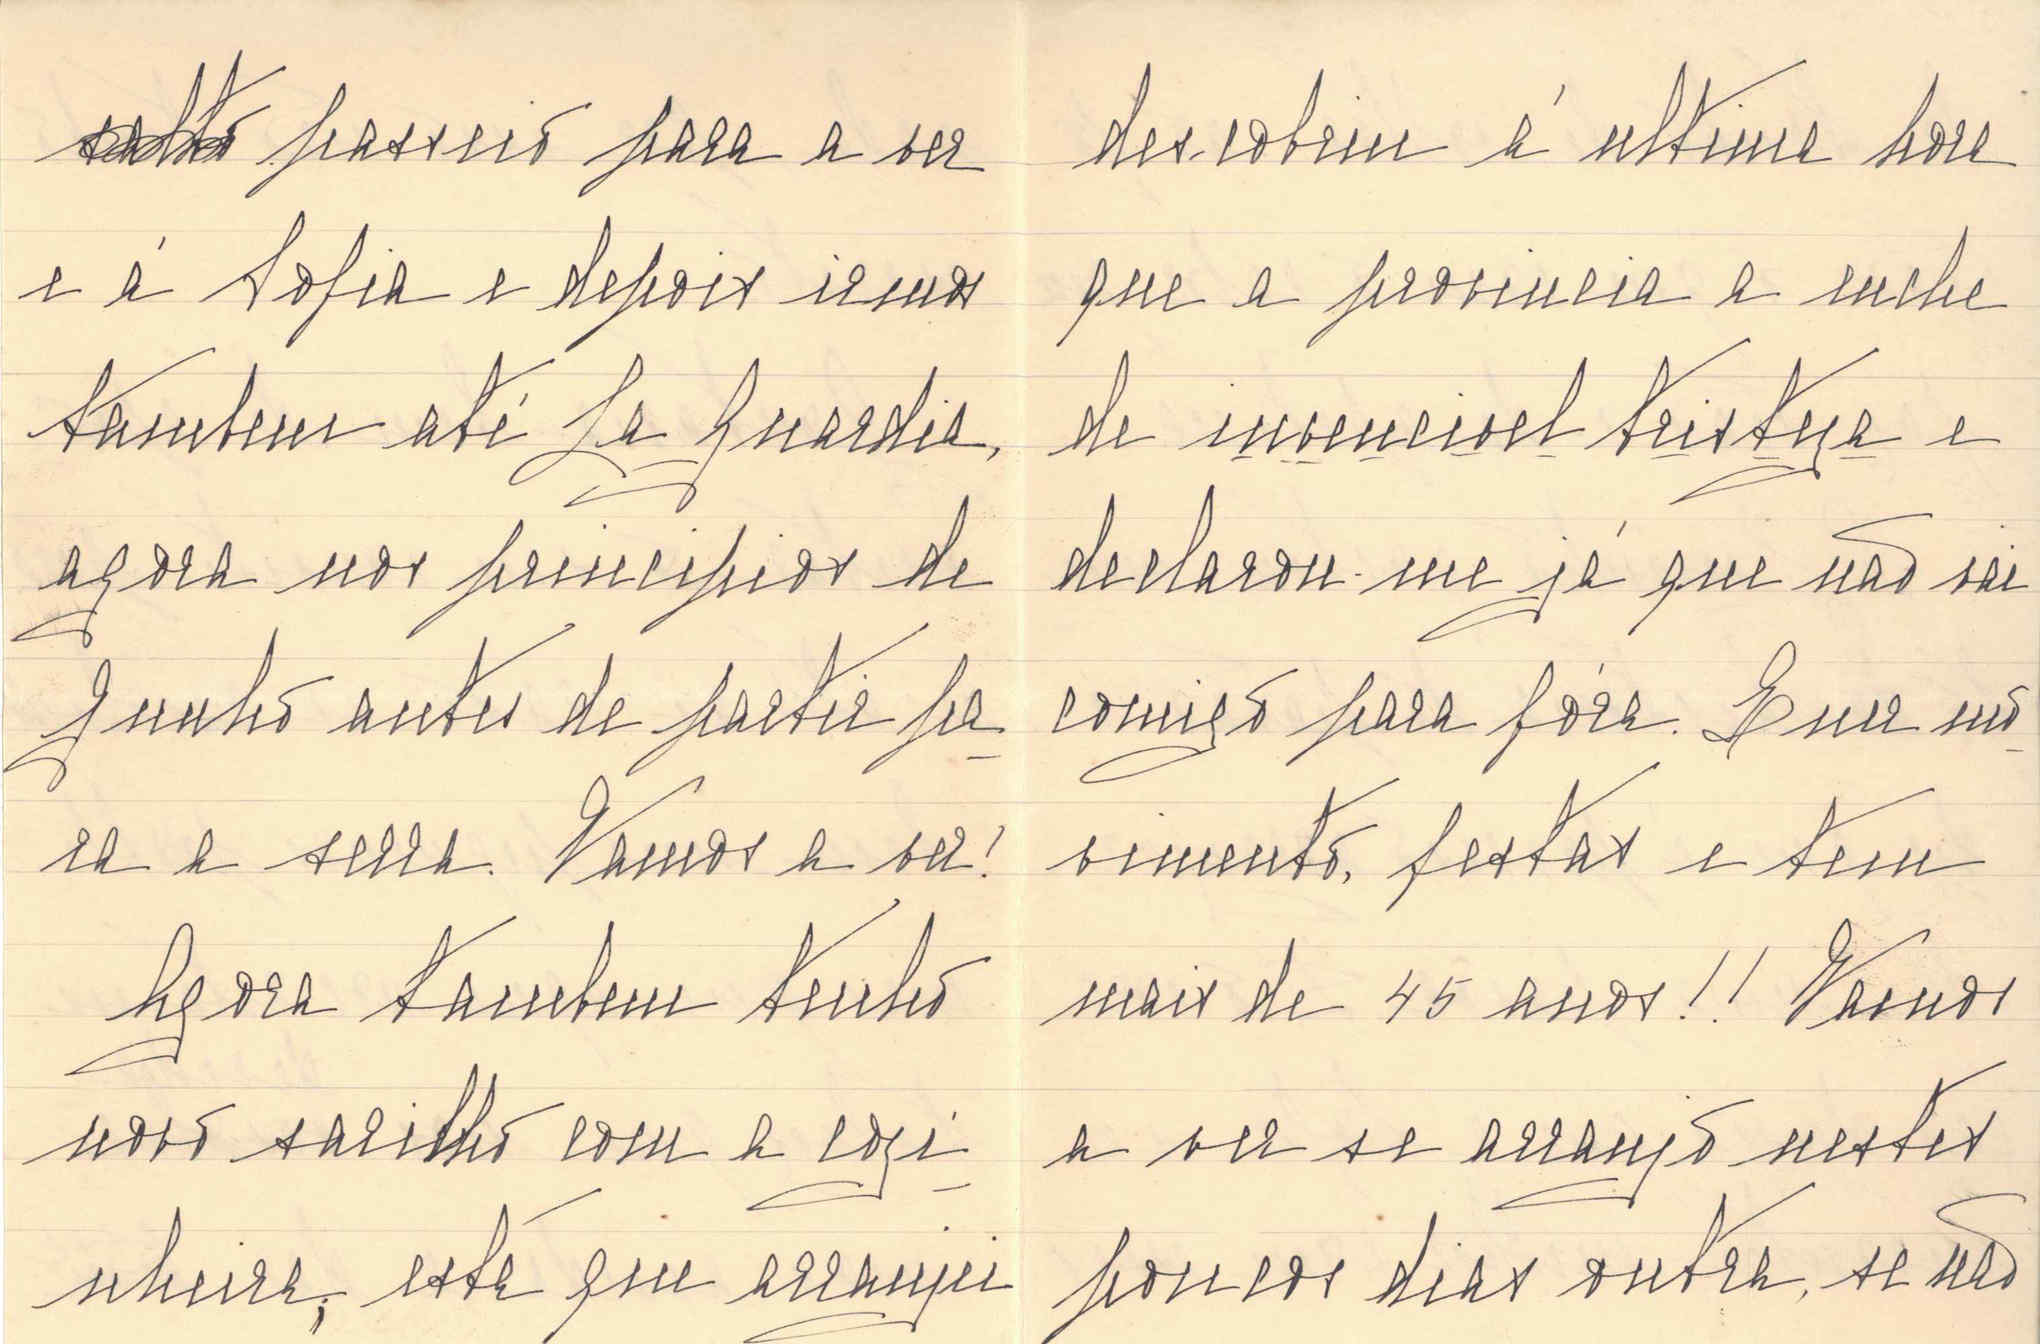 passeio para a ver
e á Sofia e depois irmos
tambem até La Guardia,
agora nos principios de
Junho antes de partir pa-
ra a serra. Vamos a ver!
Agora tambem tenho
novo sarilho com a cozi-
nheira; esta que arranjei
des-cobriu á ultima hora
que a provincia a enche
de invencivel tristeza e
declarou-me já que não sai
comigo para fóra. Quer mo-
vimento, festas e tem
mais de 45 anos!! Vamos
a ver se arranjo nestes
poucos dias outra, se não